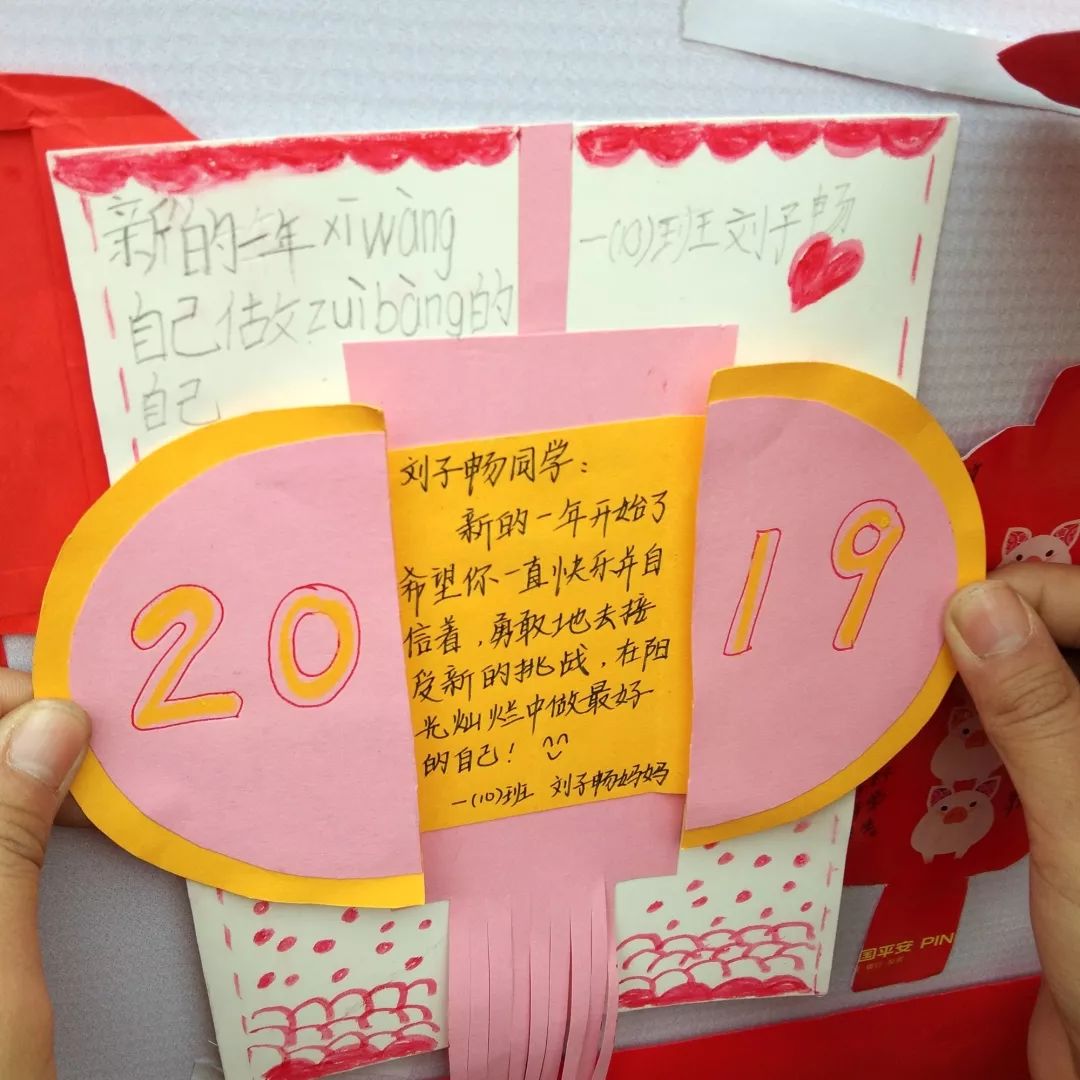 新的一年xīwàng
自己做zuìbàng的
自己
一(10)班刘子畅
20
19
刘子畅同学:
新的一年开始了
希望你一直快乐并自
信着,勇敢地去接
受新的挑战,在阳
光灿烂中做最好
的自己!
一(10)班 刘子畅妈妈
国平安 PIN